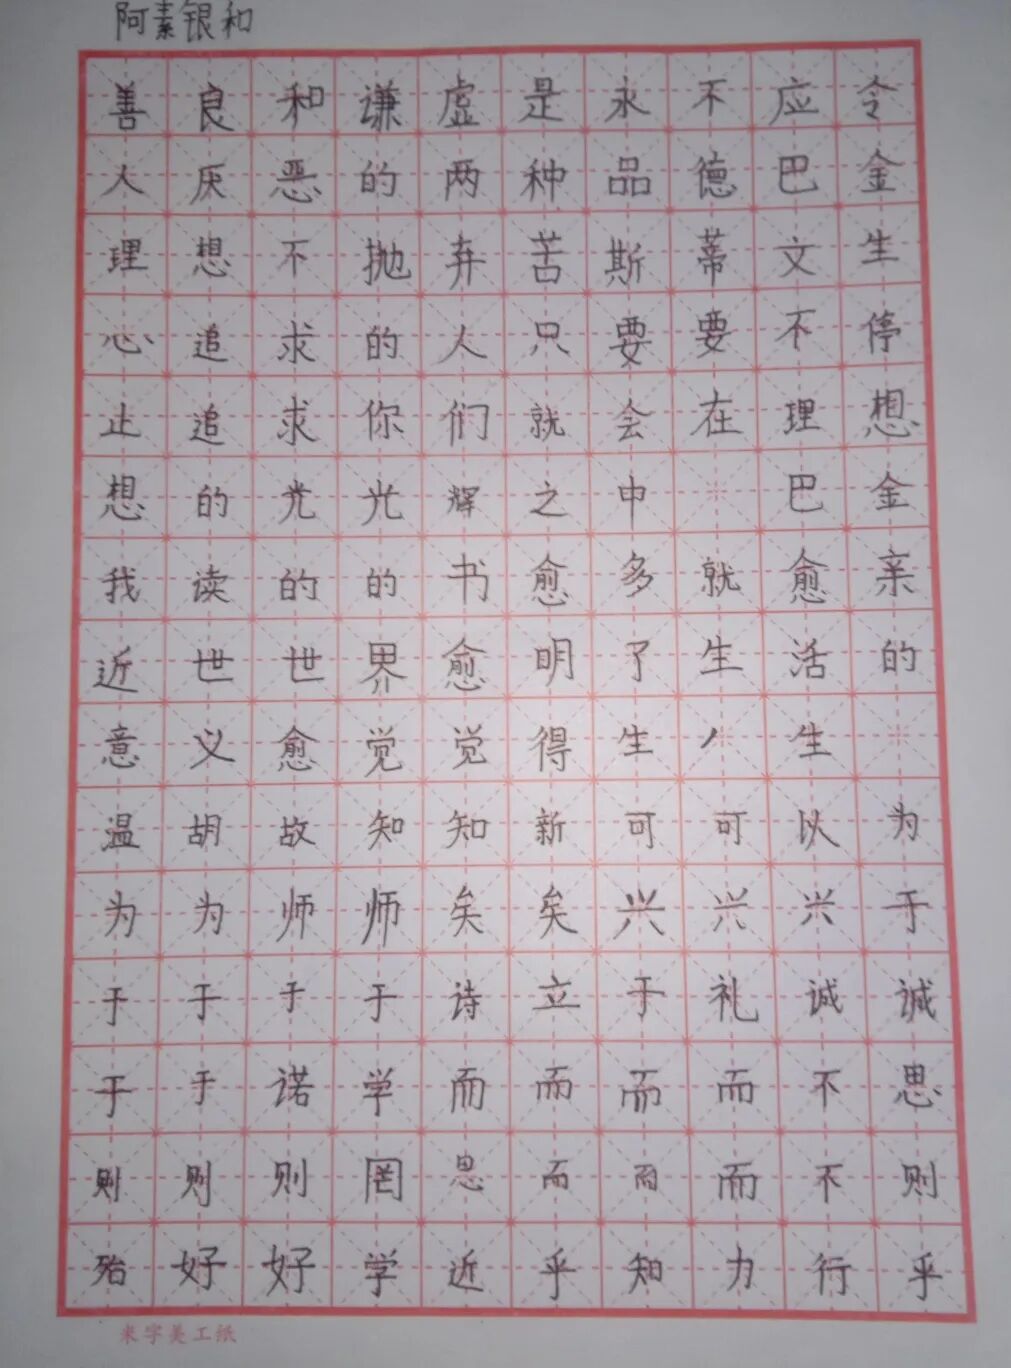 阿素银和
善良和谦虚是永不应令
人厌恶的两种品德巴金
理想不抛弃苦斯蒂文生
心追求的人只要要不停
止追求你们就会在理想
想的光光辉之中巴金
我读的的书愈多就愈亲
近世世界愈明了生活的
意义愈觉觉得生生
温胡故知知新可可以为
为为师师矣矣兴兴兴于
于于于于诗立于礼诚诚
于于诺学而而而而不思
则则则罔思而而而不则
殆好好学近乎知力行乎
米字美工纸